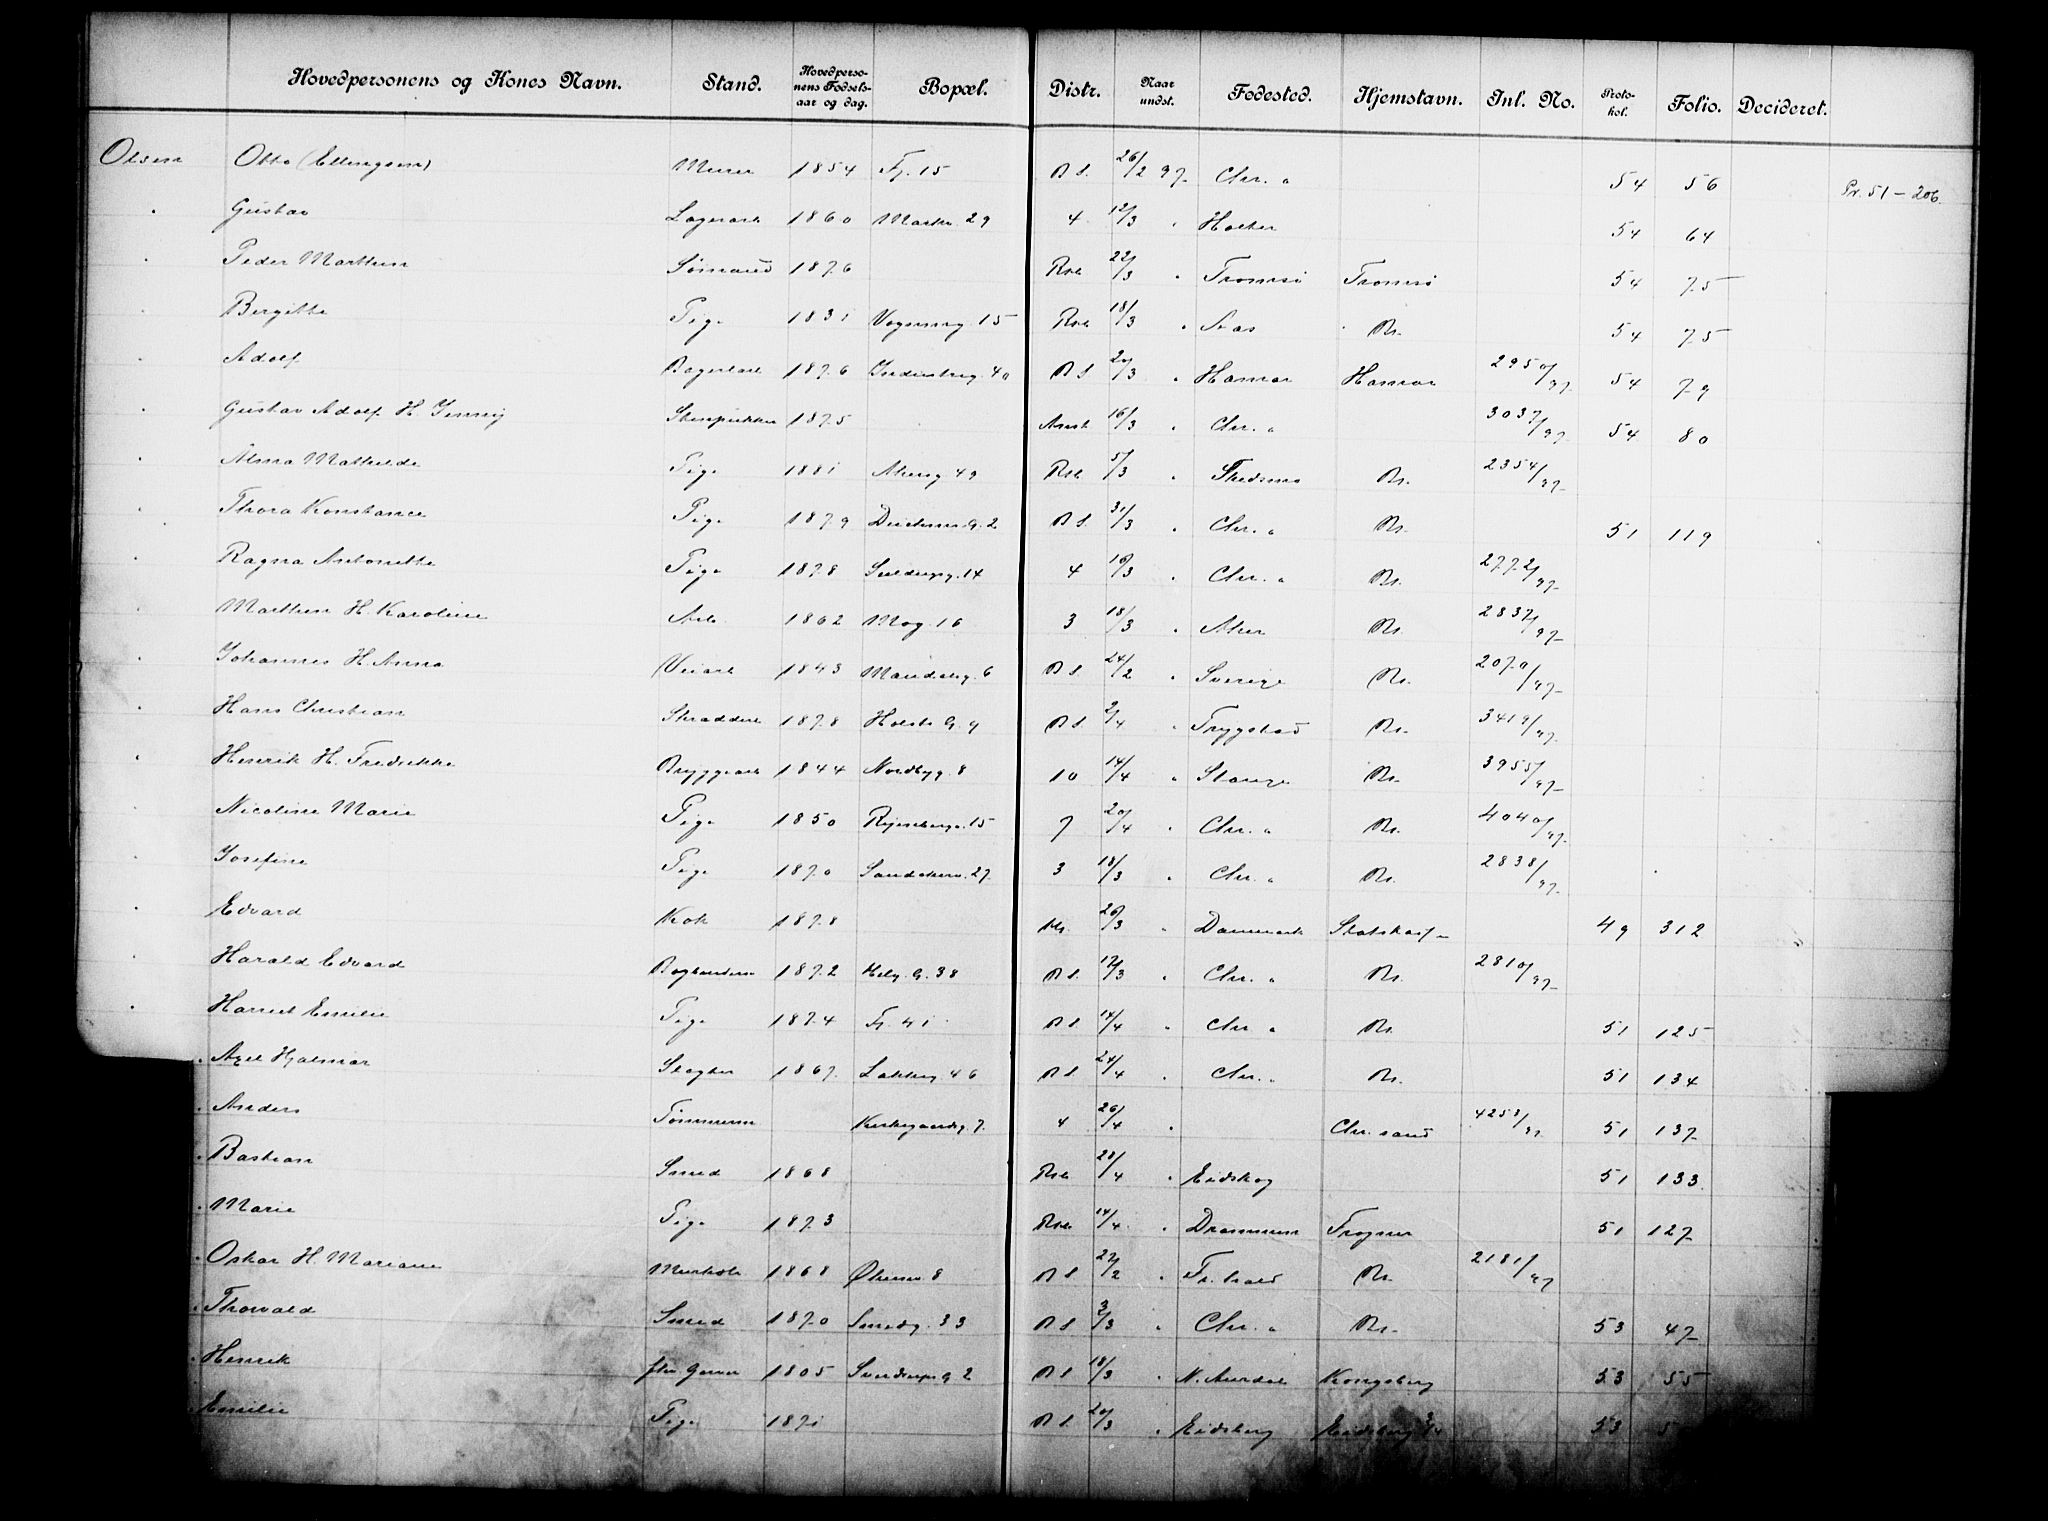 Hovedpersonens og Kones Navn. Stand. Hovedpersonens Fødselsaar og dag. Bopæl. Distr. Naar undst. Fødested. Hjemstavn. Inl. No. Protokol. Folio. Decideret.
Olsen Otto (Ellingsen) Murer 1854 Fj. 15 B S. 26/2 97 Chr. a 54 56 Pr. 51-206.
Gustav Lagerarb 1860 Markv. 29 4 12/3 " Holter 54 64
Peder Marthin Sømand 1876 Rsb 22/3 " Tromsø Tromsø 54 75
Bergitte Pige 1831 Vognmg. 15 Rsb 18/3 " Aas Kr. 54 75
Adolf Bagerarb 1876 Industrig. 40 B S. 20/3 " Hamar Hamar 2950/97 54 79
Gustav Adolf H. Jenny Stenpukker 1875 16/3 " Chr. a 3037/97 54 80
Alma Mathilde Pige 1881 Akersg 49 Rsb 5/3 " Skedsmo Kr. 2354/97
Thora Konstance Pige 1879 Deichmsg. 2 B S. 31/3 " Chr. a Kr. 51 119
Ragna Antonette Pige 1878 14 4 16/3 " Chr. a Kr. 2772/97
Marthin H. Karoline Arb. 1862 Mog. 16 3 18/3 " Aker Kr. 2837/97
Johannes H. Anna Veiarb 1843 Maridalsg. 6 B S. 24/2 " Sverige Kr. 2070/97
Hans Christian Skrædder 1878 Holsts G. 9 B S. 2/4 " Trygstad Kr. 3419/97
Henrik H. Fredrikke Bryggearb 1844 Nordbyg. 8 10 14/4 " Stange Kr. 3955/97
Nicoline Marie Pige 1850 15 7 20/4 " Chr. a Kr. 4040/97
Josefine Pige 1870 Sandakerv. 27 3 18/3 " Chr. a Kr. 2838/97
Edvard Kok 1878 26/3 " Danmark Statskas 49 312
Harald Edvard Bogbinder 1872 Helg. G. 38 B S. 17/3 " Chr. a Kr. 2810/97
Harriet Emilie Pige 1874 Fj. 41 B S. 14/4 " Chr a Kr. 51 125
Axel Hjalmar Slagter 1867 Lakkeg. 46 B S. 24/4 " Chr. a Kr. 51 134
Anders Tømmerm Kirkegaardsg. 7 4 26/4 " Chr. sand 4258/97 51 137
Bastian Smed 1868 Rsb 28/4 " Eidskog 51 133
Marie Pige 1873 Rsb 14/4 " Drammen Trogner 51 127
Oskar H. Mariane Murhdl 1868 Økernv. 8 B S. 22/2 " Fr. hald Kr. 2181/97
Thorvald Smed 1870 Smedg. 33 B S. 3/3 " Chr. a Kr. 53 47
Henrik fhv Garver 1805 Sverdrups G 2 B S 18/3 " N. Aurdal Kongsberg 53 55
Emilie Pige 1871 B S. 20/3 " Eidsberg Eidsberg 53 5